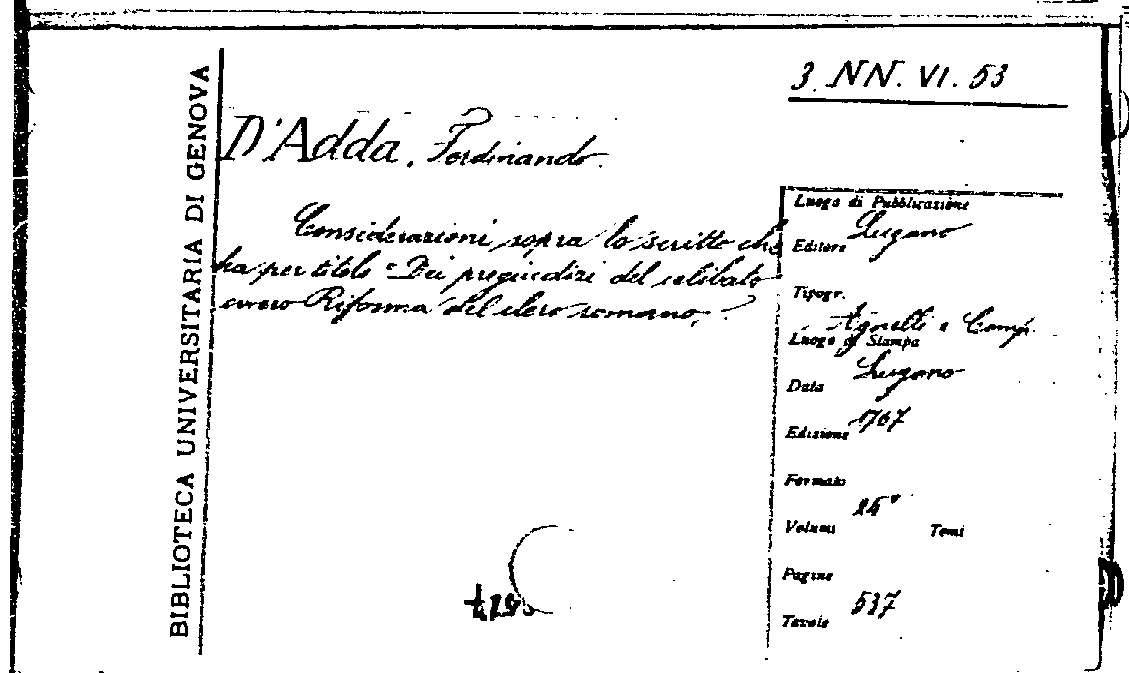 BIBLIOTECA UNIVERSITARIA DI GENOVA
3. NN. VI. 53
D'Adda, Ferdinando.
Considerazioni sopra lo scritto che
ha per titolo "Dei pregiudizi del celibato
ovvero Riforma del clero romano,
Luogo di Pubblicazione
Lugano
Editore
Tipogr.
Agnelli e Comp.
Luogo di Stampa
Lugano
Data
1767
Edizione
Formato
Volumi
Tomi
Pagine
537
Tavole